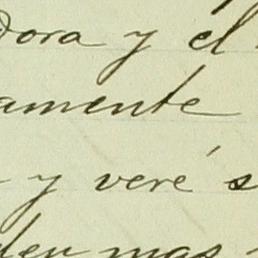 dora y el
amente
y veré s
der mas